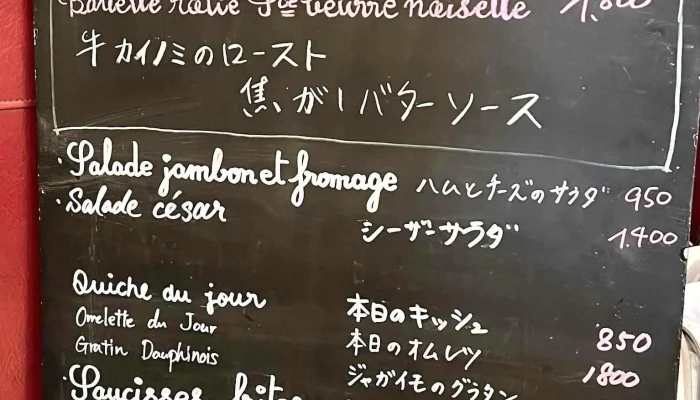 Bavette rôtie Sce beurre noisette 1,800
牛カイノミのロースト
焦がしバターソース
・Salade jambon et fromage ハムとチーズのサラダ 950
・Salade césar シーザーサラダ 1,400
Quiche du jour 本日のキッシュ 850
Omelette du Jour 本日のオムレツ 1800
Gratin Dauphinois ジャガイモのグラタン
・Saucisses